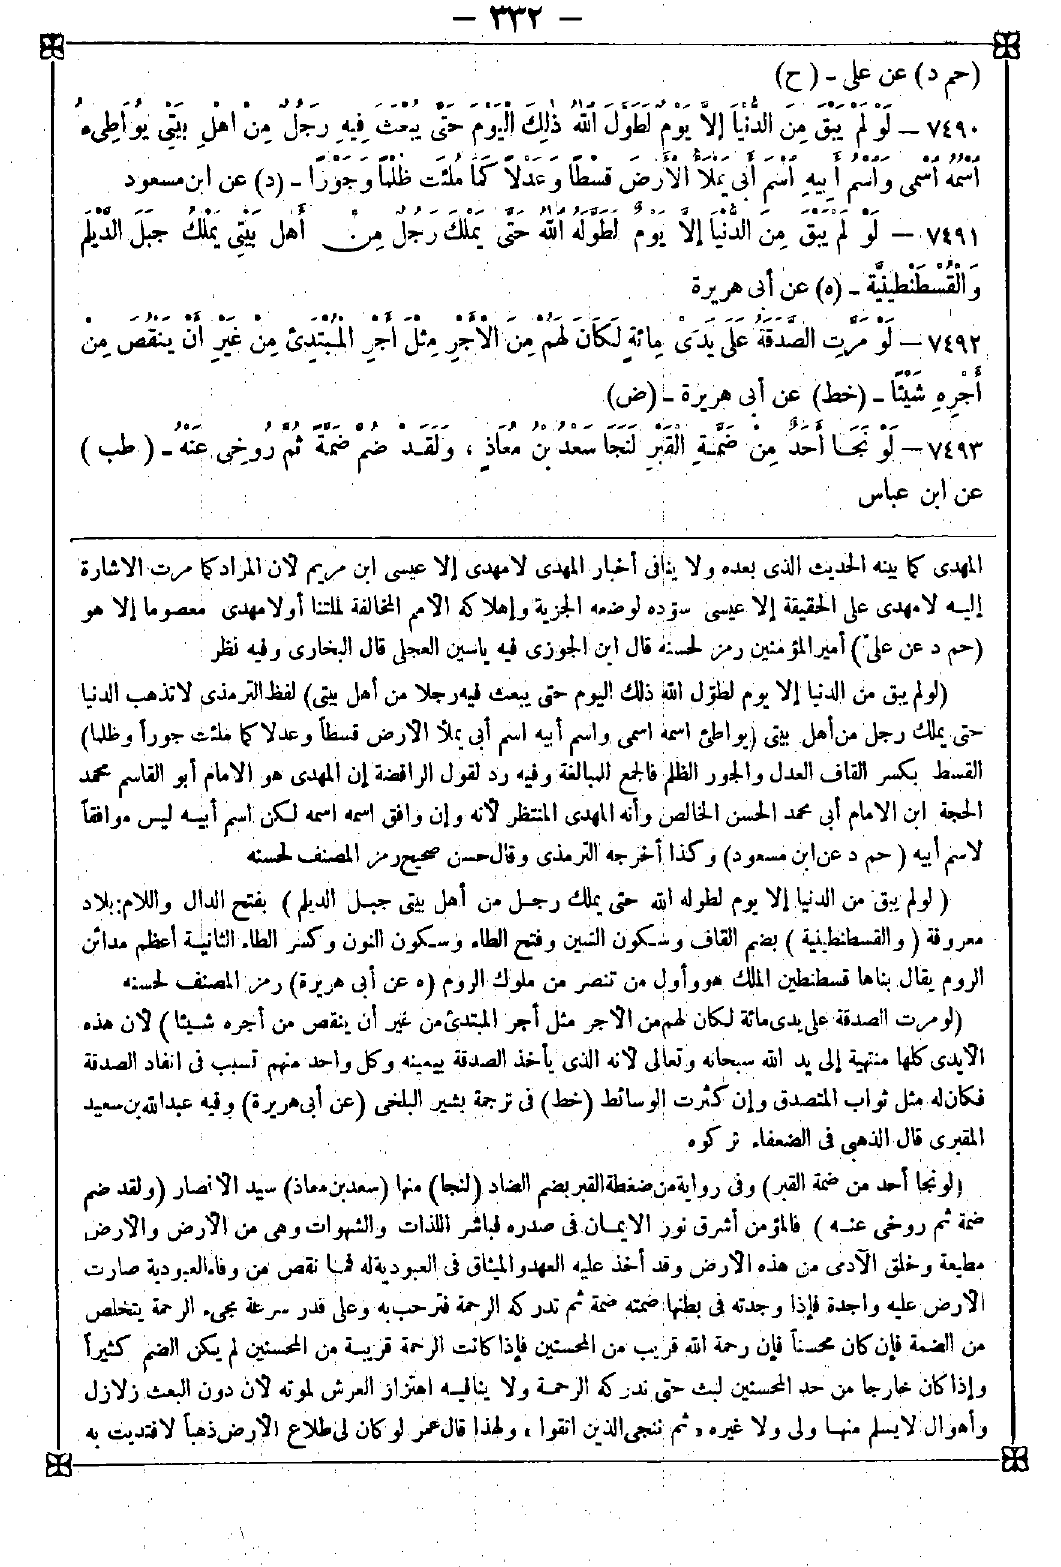 – ٣٣٢ –
(حم د) عن على - (ح)
٧٤٩٠ – لَوْ لَمْ يَبْقَ مِنَ الدُّنْيَا إلاَّ يَوْمٌ لَطَوَّلَ اللهُ ذٰلِكَ الْيَوْمَ حَتَّى يُبْعَثَ فِيهِ رَجُلٌ مِنْ أَهْلِ بَيْتِى يُوَاطِىءُ
اسْمُهُ اسْمِى وَاسْمُ أَبِيهِ اسْمَ أَبِى يَمْلَأُ الْأَرْضَ قِسْطًا وَعَدْلاً كَمَا مُلِئَتْ ظُلْمًا وَجَوْرًا - (د) عن ابن مسعود
٧٤٩١ – لَوْ لَمْ يَبْقَ مِنَ الدُّنْيَا إلاَّ يَوْمٌ لَطَوَّلَهُ اللهُ حَتَّى يَمْلِكَ رَجُلٌ مِنْ أَهْلِ بَيْتِى يَمْلِكُ جَبَلَ الدَّيْلَمِ
وَالْقُسْطَنْطِينِيَّةَ - (ه) عن أبى هريرة
٧٤٩٢ – لَوْ مَرَّتِ الصَّدَقَةُ عَلَى يَدَىْ مِائَةٍ لَكَانَ لَهُمْ مِنَ الْأَجْرِ مِثْلُ أَجْرِ الْمُبْتَدِئِ مِنْ غَيْرِ أَنْ يَنْقُصَ مِنْ
أَجْرِهِ شَيْئًا - (خط) عن أبى هريرة - (ض)
٧٤٩٣ – لَوْ نَجَا أَحَدٌ مِنْ ضَمَّةِ الْقَبْرِ لَنَجَا سَعْدُ بْنُ مُعَاذٍ ، وَلَقَدْ ضُمَّ ضَمَّةً ثُمَّ رُوخِىَ عَنْهُ - ( طب )
عن ابن عباس
المهدى كما بينه الحديث الذى بعده ولا ينافى أخبار المهدى لا مهدى إلا عيسى ابن مريم لأن المراد كما مرت الاشارة
إليه لا مهدى على الحقيقة إلا عيسى سؤده لوضعه الجزية وإهلاكه الأمم المخالفة لملتنا أو لا مهدى معصوما إلا هو
(حم د عن علىّ) أمير المؤمنين رمز لحسنه قال ابن الجوزى فيه ياسين العجلى قال البخارى وفيه نظر
(لو لم يبق من الدنيا إلا يوم لطوّل الله ذلك اليوم حتى يبعث فيه رجلا من أهل بيتى) لفظ الترمذى لا تذهب الدنيا
حتى يملك رجل من أهل بيتى (يواطئ اسمه اسمى واسم أبيه اسم أبى يملأ الأرض قسطاً وعدلا كما ملئت جوراً وظلما)
القسط بكسر القاف العدل والجور الظلم فالجمع للمبالغة وفيه رد لقول الرافضة إن المهدى هو الامام أبو القاسم محمد
الحجة ابن الامام أبى محمد الحسن الخالص وأنه المهدى المنتظر لأنه وإن وافق اسمه اسمه لكن اسم أبيه ليس موافقاً
لاسم أبيه ( حم د عن ابن مسعود) وكذا أخرجه الترمذى وقال حسن صحيح رمز المصنف لحسنه
( لو لم يبق من الدنيا إلا يوم لطوله الله حتى يملك رجل من أهل بيتى جبل الديلم ) بفتح الدال واللام: بلاد
معروفة ( والقسطنطينية ) بضم القاف وسكون السين وفتح الطاء وسكون النون وكسر الطاء الثانية أعظم مدائن
الروم يقال بناها قسطنطين الملك هو وأول من تنصر من ملوك الروم (ه عن أبى هريرة) رمز المصنف لحسنه
(لو مرت الصدقة على يدى مائة لكان لهم من الأجر مثل أجر المبتدئ من غير أن ينقص من أجره شيئا ) لأن هذه
الأيدى كلها منتهية إلى يد الله سبحانه وتعالى لأنه الذى يأخذ الصدقة بيمينه وكل واحد منهم تسبب فى انفاد الصدقة
فكان له مثل ثواب المتصدق وإن كثرت الوسائط (خط) فى ترجمة بشير البلخى (عن أبى هريرة) وفيه عبد الله بن سعيد
المقبرى قال الذهبى فى الضعفاء تركوه
(لو نجا أحد من ضمة القبر) وفى رواية من ضغطة القبر بضم الضاد (لنجا) منها (سعد بن معاذ) سيد الأنصار (ولقد ضم
ضمة ثم روخى عنه ) فالمؤمن أشرق نور الايمان فى صدره فباشر اللذات والشهوات وهى من الأرض والأرض
مطيعة وخلق الآدمى من هذه الأرض وقد أخذ عليه العهد والميثاق فى العبودية له فما نقص من وفاء العبودية صارت
الأرض عليه واجدة فإذا وجدته فى بطنها ضمته ضمة ثم تدركه الرحمة فترحب به وعلى قدر سرعة مجىء الرحمة يتخلص
من الضمة فإن كان محسناً فإن رحمة الله قريب من المحسنين فإذا كانت الرحمة قريبة من المحسنين لم يكن الضم كثيراً
وإذا كان خارجا من حد المحسنين لبث حتى تدركه الرحمة ولا ينافيه اهتزاز العرش لموته لأن دون البعث زلازل
وأهوال لا يسلم منها ولى ولا غيره « ثم ننجى الذين اتقوا » ولهذا قال عمر لو كان لى طلاع الأرض ذهباً لافتديت به